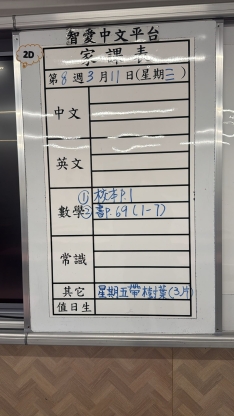 智愛中文平台
2D
家課表
第8週3月11日(星期三)
中文
英文
數學
①校本P.1
②書P.69(1-7)
常識
其它
星期五帶樹葉(3片)
值日生